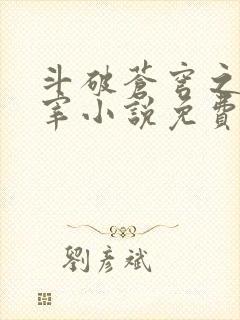 斗破蒼穹之
宰小說免費
劉彥斌